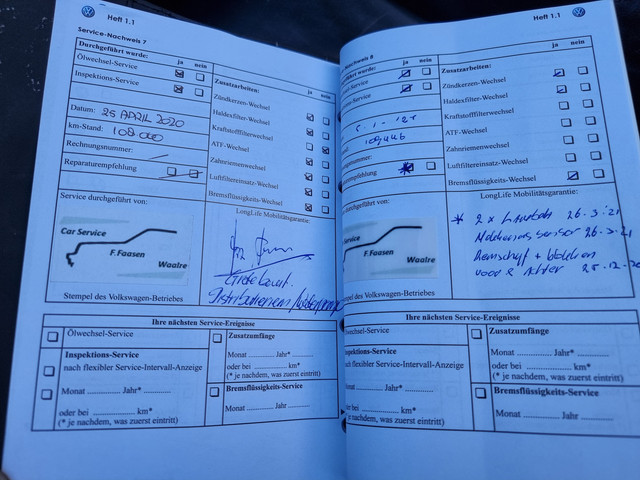 Heft 1.1
Service-Nachweis 7
Durchgeführt wurde:
ja nein
Ölwechsel-Service
Inspektions-Service
Datum: 25 APRIL 2020
km-Stand: 108.000
Rechnungsnummer:
Reparaturempfehlung
Zusatzarbeiten:
ja nein
Zündkerzen-Wechsel
Haldexfilter-Wechsel
Kraftstofffilterwechsel
ATF-Wechsel
Zahnriemenwechsel
Luftfiltereinsatz-Wechsel
Bremsflüssigkeits-Wechsel
Service durchgeführt von:
Car Service
F.Faasen
Waalre
Stempel des Volkswagen-Betriebes
LongLife Mobilitätsgarantie:
Grote beurt.
Ihre nächsten Service-Ereignisse
Ölwechsel-Service
Inspektions-Service
nach flexibler Service-Intervall-Anzeige
Monat ............ Jahr* ............
oder bei ............ km*
(* je nachdem, was zuerst eintritt)
Zusatzumfänge
Monat ............ Jahr* ............
oder bei ............ km*
(* je nachdem, was zuerst eintritt)
Bremsflüssigkeits-Service
Monat ............ Jahr ............
Heft 1.1
Nachweis 8
geführt wurde:
ja nein
-Service
-Service
109,446
nummer:
empfehlung
Zusatzarbeiten:
ja nein
Zündkerzen-Wechsel
Haldexfilter-Wechsel
Kraftstofffilterwechsel
ATF-Wechsel
Zahnriemenwechsel
Luftfiltereinsatz-Wechsel
Bremsflüssigkeits-Wechsel
durchgeführt von:
Service
F.Faasen
Waalre
des Volkswagen-Betriebes
LongLife Mobilitätsgarantie:
* 2 x 26-3-21
sensor 26-3-21
Remschijf + blokken
voor & Achter
Ihre nächsten Service-Ereignisse
chsel-Service
pektions-Service
ch flexibler Service-Intervall-Anzeige
Monat ............ Jahr* ............
oder bei ............ km*
(* je nachdem, was zuerst eintritt)
Zusatzumfänge
Monat ............ Jahr* ............
oder bei ............ km*
(* je nachdem, was zuerst eintritt)
Bremsflüssigkeits-Service
Monat ............ Jahr ............